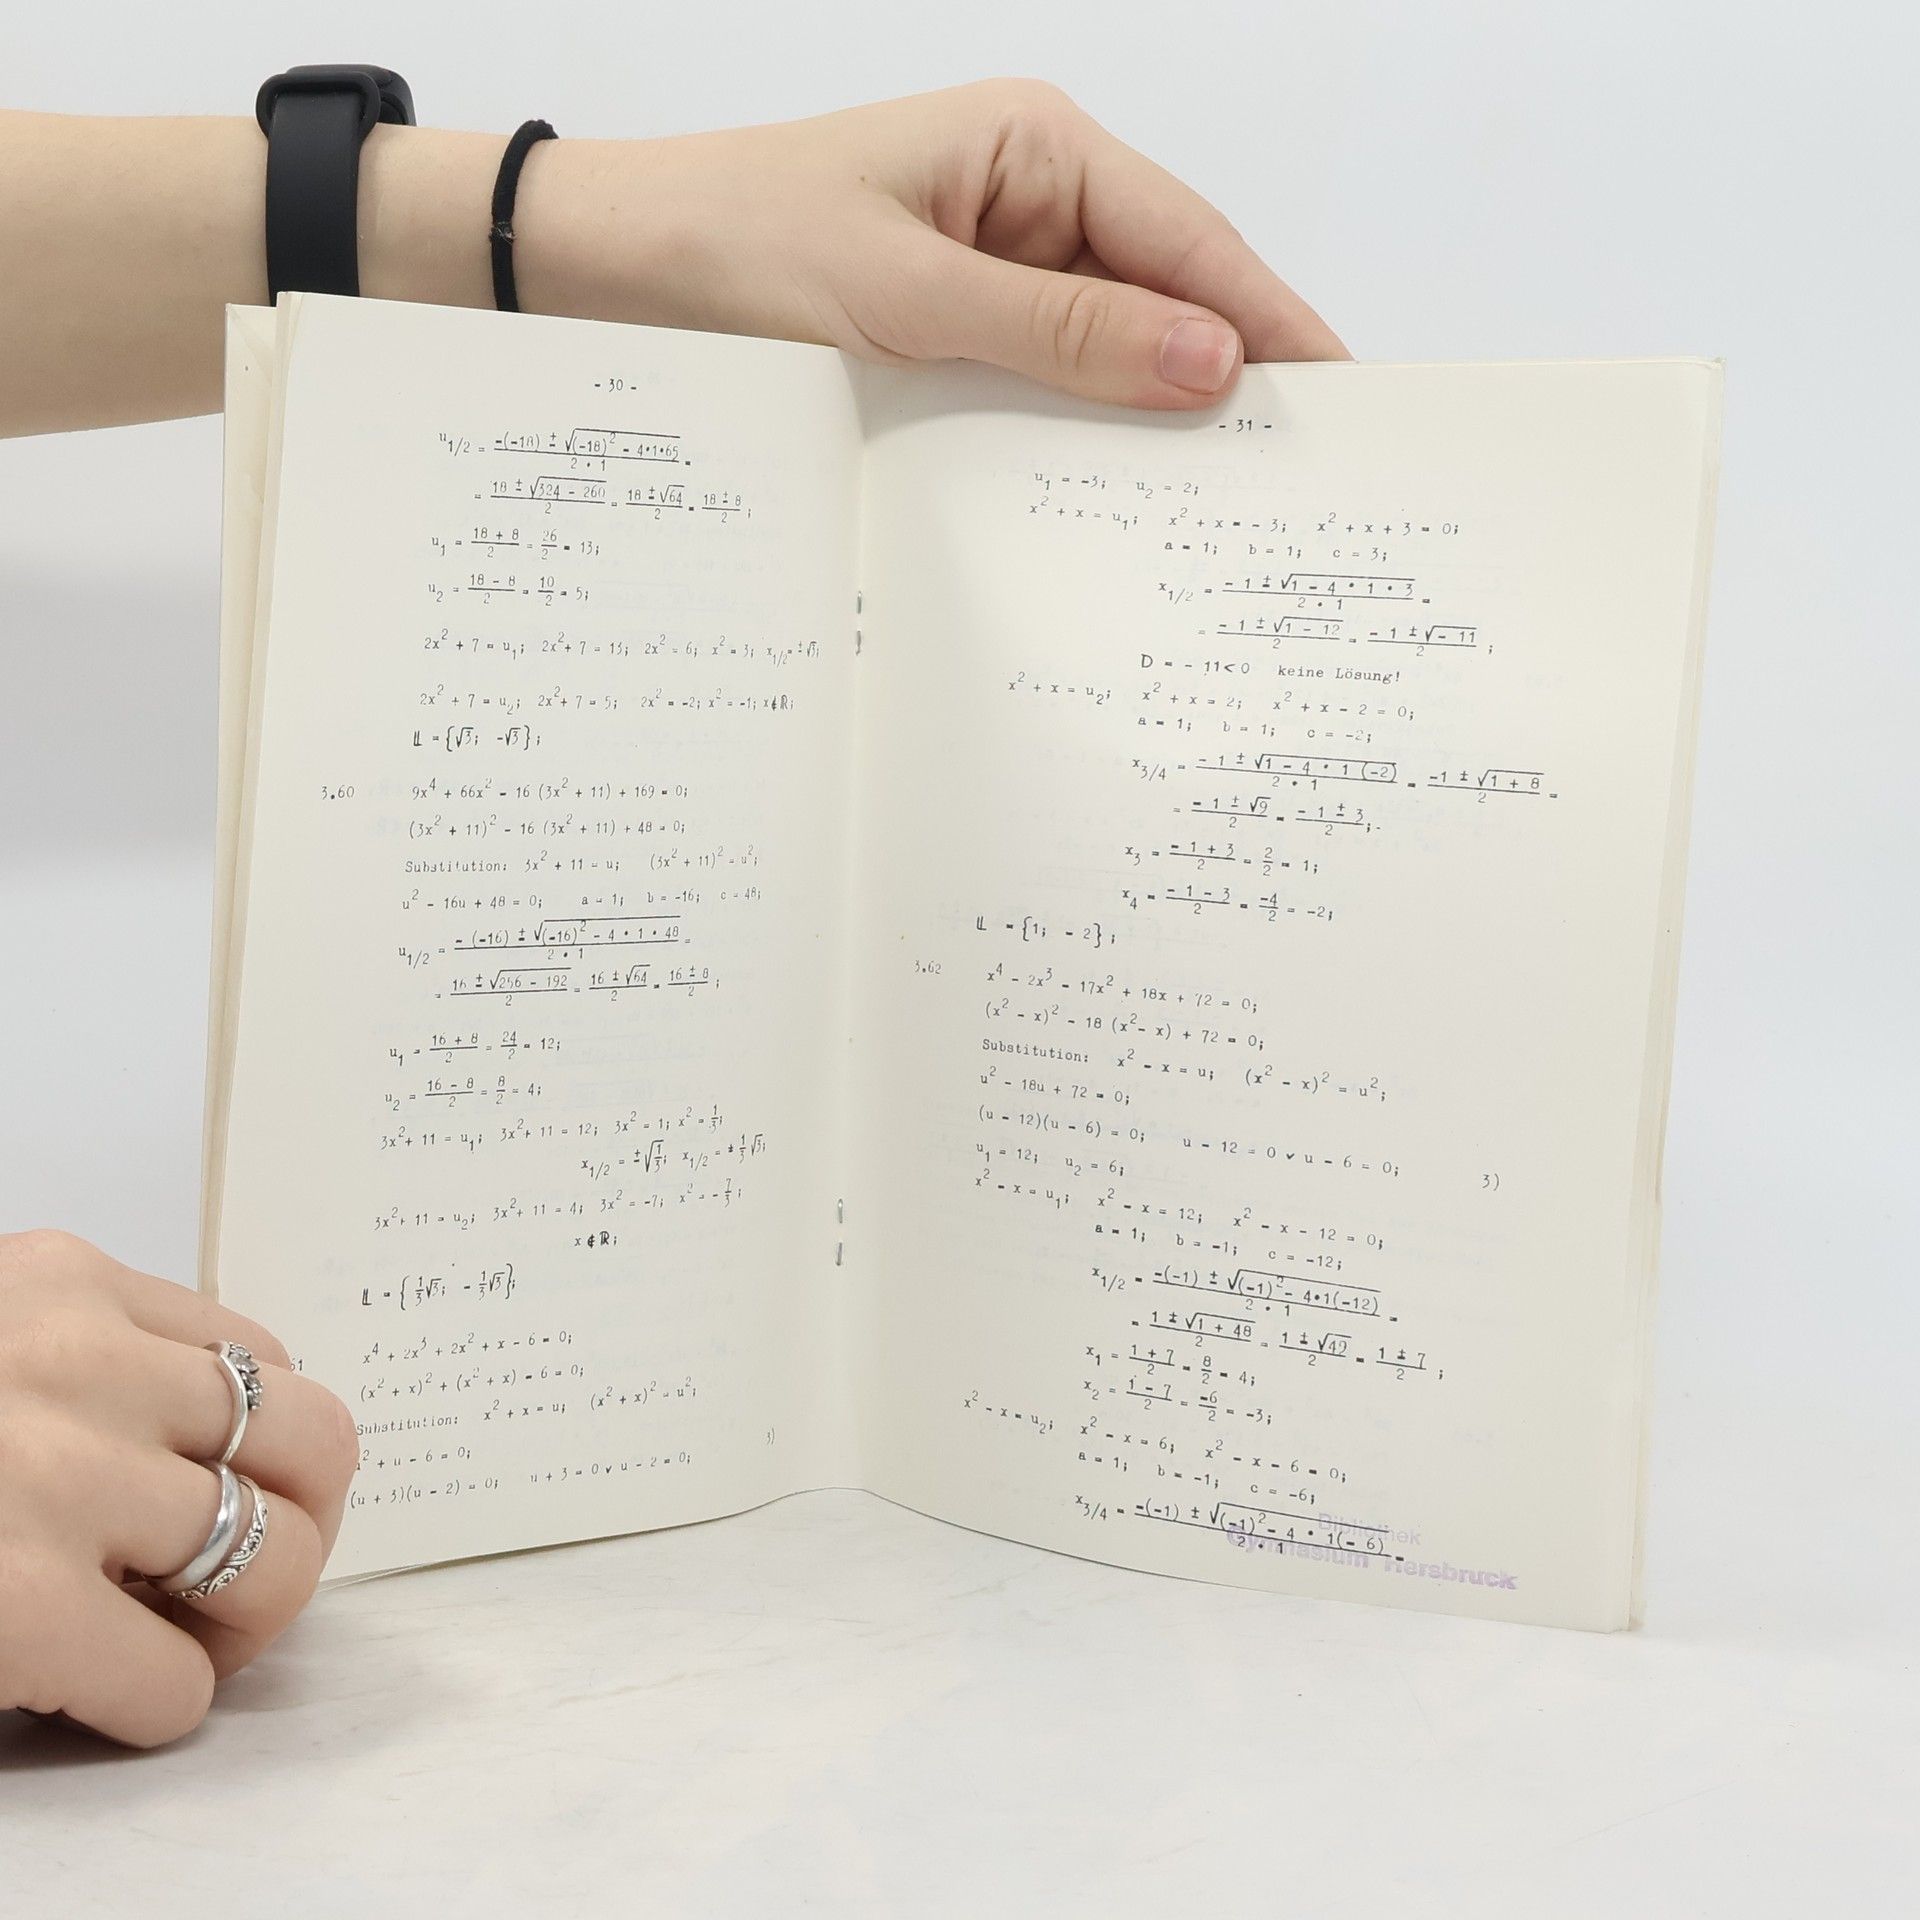 - 30 -
u1/2 = (-(-18) ± √((-18)² - 4•1•65))/(2 • 1) =
= (18 ± √(324 - 260))/2 = (18 ± √64)/2 = (18 ± 8)/2 ;
u1 = (18 + 8)/2 = 26/2 = 13;
u2 = (18 - 8)/2 = 10/2 = 5;
2x² + 7 = u1; 2x² + 7 = 13; 2x² = 6; x² = 3; x1/2 = ±√3;
2x² + 7 = u2; 2x² + 7 = 5; 2x² = -2; x² = -1; x ∉ ℝ;
𝕃 = {√3; -√3};
3.60 9x⁴ + 66x² - 16 (3x² + 11) + 169 = 0;
(3x² + 11)² - 16 (3x² + 11) + 48 = 0;
Substitution: 3x² + 11 = u; (3x² + 11)² = u²;
u² - 16u + 48 = 0; a = 1; b = -16; c = 48;
u1/2 = (- (-16) ± √((-16)² - 4 • 1 • 48))/(2 • 1) =
= (16 ± √(256 - 192))/2 = (16 ± √64)/2 = (16 ± 8)/2 ;
u1 = (16 + 8)/2 = 24/2 = 12;
u2 = (16 - 8)/2 = 8/2 = 4;
3x² + 11 = u1; 3x² + 11 = 12; 3x² = 1; x² = 1/3;
x1/2 = ±√(1/3); x1/2 = ± 1/3 √3;
3x² + 11 = u2; 3x² + 11 = 4; 3x² = -7; x² = - 7/3;
x ∉ ℝ;
𝕃 = {1/3 √3; - 1/3 √3};
61 x⁴ + 2x³ + 2x² + x - 6 = 0;
(x² + x)² + (x² + x) - 6 = 0;
Substitution: x² + x = u; (x² + x)² = u²;
u² + u - 6 = 0;
(u + 3)(u - 2) = 0; u + 3 = 0 ∨ u - 2 = 0; 3)
- 31 -
u1 = -3; u2 = 2;
x² + x = u1; x² + x = - 3; x² + x + 3 = 0;
a = 1; b = 1; c = 3;
x1/2 = (- 1 ± √(1 - 4 • 1 • 3))/(2 • 1) =
= (- 1 ± √(1 - 12))/2 = (- 1 ± √(- 11))/2 ;
D = - 11 < 0 keine Lösung!
x² + x = u2; x² + x = 2; x² + x - 2 = 0;
a = 1; b = 1; c = -2;
x3/4 = (- 1 ± √(1 - 4 • 1 (-2)))/(2 • 1) = (-1 ± √(1 + 8))/2 =
= (- 1 ± √9)/2 = (- 1 ± 3)/2 ;
x3 = (- 1 + 3)/2 = 2/2 = 1;
x4 = (- 1 - 3)/2 = -4/2 = -2;
𝕃 = {1; - 2};
3.62 x⁴ - 2x³ - 17x² + 18x + 72 = 0;
(x² - x)² - 18 (x² - x) + 72 = 0;
Substitution: x² - x = u; (x² - x)² = u²;
u² - 18u + 72 = 0;
(u - 12)(u - 6) = 0; u - 12 = 0 ∨ u - 6 = 0; 3)
u1 = 12; u2 = 6;
x² - x = u1; x² - x = 12; x² - x - 12 = 0;
a = 1; b = -1; c = -12;
x1/2 = (-(-1) ± √((-1)² - 4•1(-12)))/(2 • 1) =
= (1 ± √(1 + 48))/2 = (1 ± √49)/2 = (1 ± 7)/2 ;
x1 = (1 + 7)/2 = 8/2 = 4;
x2 = (1 - 7)/2 = -6/2 = -3;
x² - x = u2; x² - x = 6; x² - x - 6 = 0;
a = 1; b = -1; c = -6;
x3/4 = (-(-1) ± √((-1)² - 4 • 1(- 6)))/(2 • 1) =
Bibliothek
Gymnasium Hersbruck